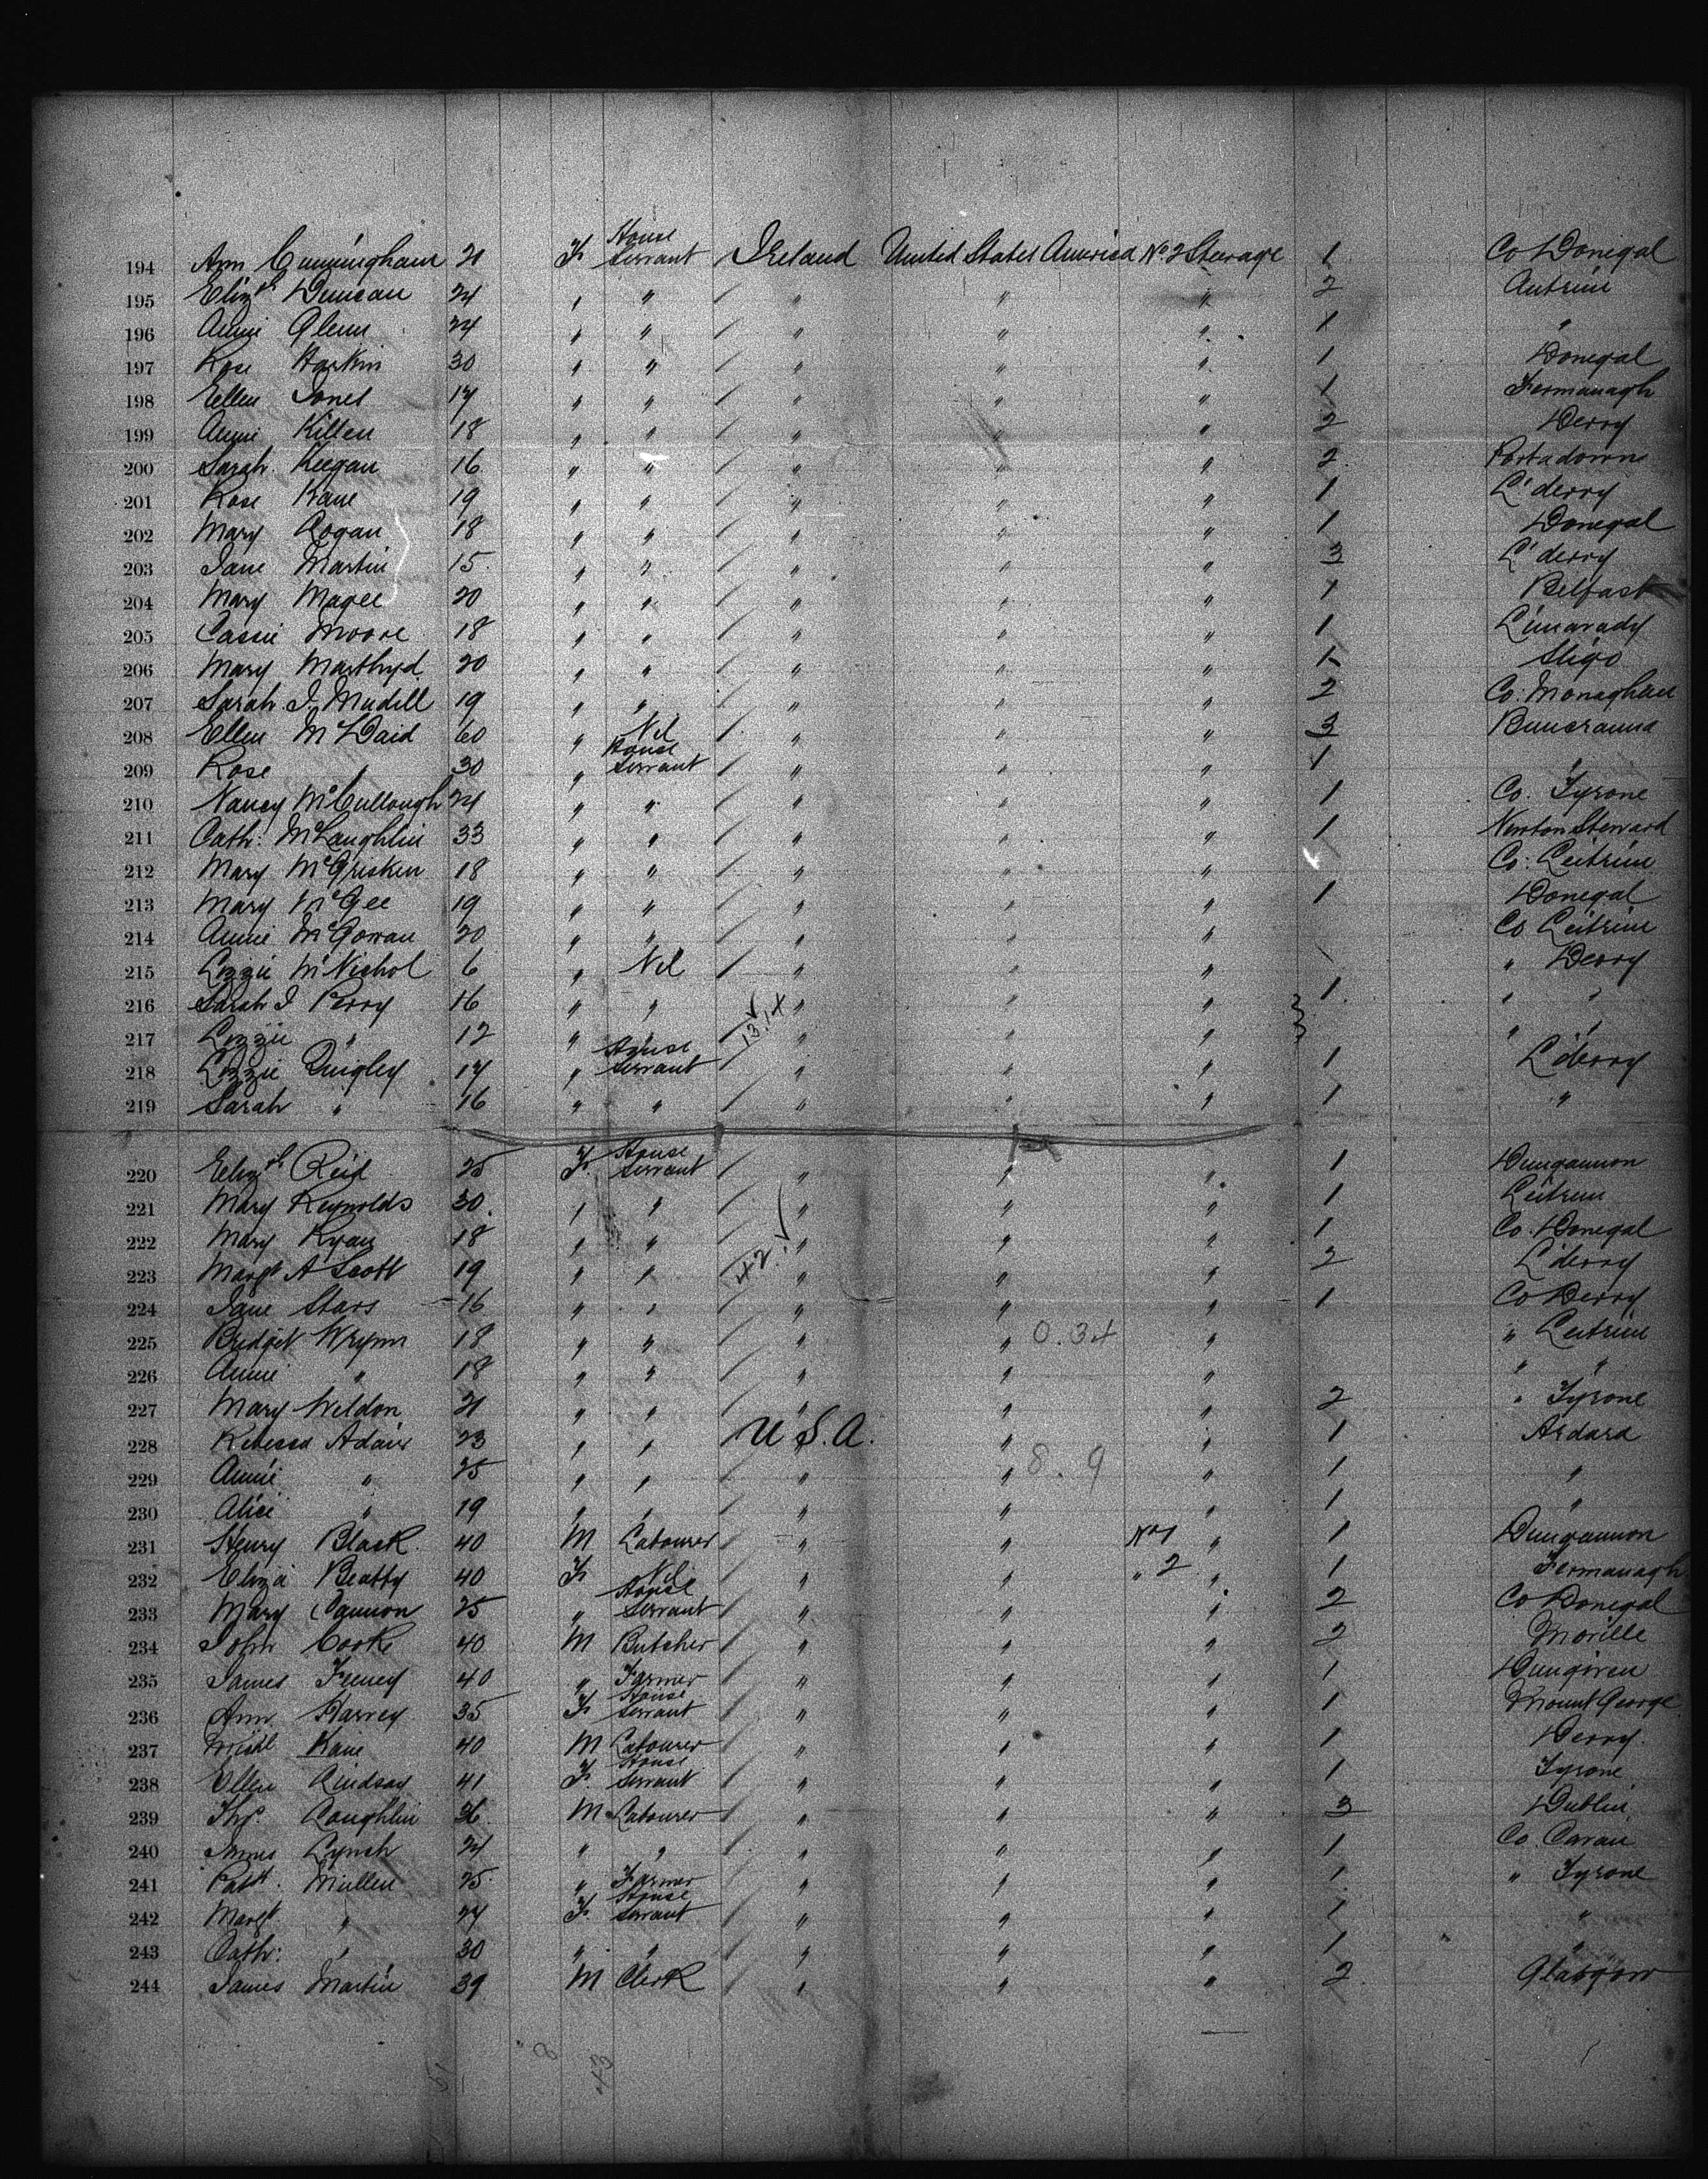 194 Ann Cunningham 21 F House Servant Ireland United States America No 2 Steerage 1 Co Donegal
195 Elizth Duncan 24 " " " " " 2 Antrim
196 Annie Glenn 24 " " " " " 1 "
197 Rose Harkin 30 " " " " " 1 Donegal
198 Ellen Jones 17 " " " " " 1 Fermanagh
199 Annie Killen 18 " " " " " 2 Derry
200 Sarah Keegan 16 " " " " " 2 Portadown
201 Rose Kane 19 " " " " " 1 L'derry
202 Mary Logan 18 " " " " " 1 Donegal
203 Jane Martin 15 " " " " " 3 L'derry
204 Mary Magee 20 " " " " " 1 Belfast
205 Cassie Moore 18 " " " " " 1 Limavady
206 Mary 20 " " " " " 1 Sligo
207 Sarah J. Mudill 19 " " " " " 2 Co. Monaghan
208 Ellen McDaid 60 " Nil " " " 3 Buncranna
209 Rose " 30 " House Servant " " " 1 "
210 Nancy McCullough 24 " " " " " 1 Co. Tyrone
211 Cath: McLaughlin 33 " " " " " 1 Newton Steward
212 Mary McGrisken 18 " " " " " 1 Co. Leitrim
213 Mary McGee 19 " " " " " 1 Donegal
214 Annie McGowan 20 " " " " " Co Leitrim
215 Lizzie McNichol 6 " Nil " " " " Derry
216 Sarah J Perry 16 " " " " " 1 " "
217 Lizzie " 12 " " 13.14 " " " " "
218 Lizzie Quigley 17 " House Servant " " " 1 L'derry
219 Sarah " 16 " " " " " 1 "
220 Elizth Reid 25 F. House Servant " " " 1 Dungannon
221 Mary Reynolds 30. " " " " " 1 Leitrim
222 Mary Ryan 18 " " " " " 1 Co. Donegal
223 Margt A Scott 19 " " 42. " " " 2 L'derry
224 Jane Stars 16 " " " " " 1 Co Derry
225 Bridget Wrynn 18 " " " " 0.34 " " Leitrim
226 Annie " 18 " " " " " " "
227 Mary Weldon 21 " " " " " 2 " Tyrone
228 Rebecca Adair 23 " " U.S.A. " " 1 Ardara
229 Annie " 25 " " " " 8.9 " 1 "
230 Alice " 19 " " " " " 1 "
231 Henry Black 40 M Labourer " " No 1 " 1 Dungannon
232 Eliza Beatty 40 F Nil " " " 2 " 1 Fermanagh
233 Mary Cannon 25 " House Servant " " " 2 Co Donegal
234 John Cooke 40 M Butcher " " " 2 Moville
235 James Feeney 40 " Farmer " " " 1 Dungiven
236 Ann Harvey 35 F House Servant " " " 1 Mount George
237 Michl Kane 40 M Labourer " " " 1 Derry.
238 Ellen Lindsay 41 F. House Servant " " " 1 Tyrone
239 Thos. Loughlin 36. M Labourer " " " 3 Dublin
240 James Lynch 24 " " " " " 1 Co. Cavan
241 Patk. Mullen 25. " Farmer " " " 1. " Tyrone
242 Margt. " 27 F. House Servant " " " 1 "
243 Cath: " 30 " " " " " 1 "
244 James Martin 39 M Clerk " " " 2 Glasgow
8 43